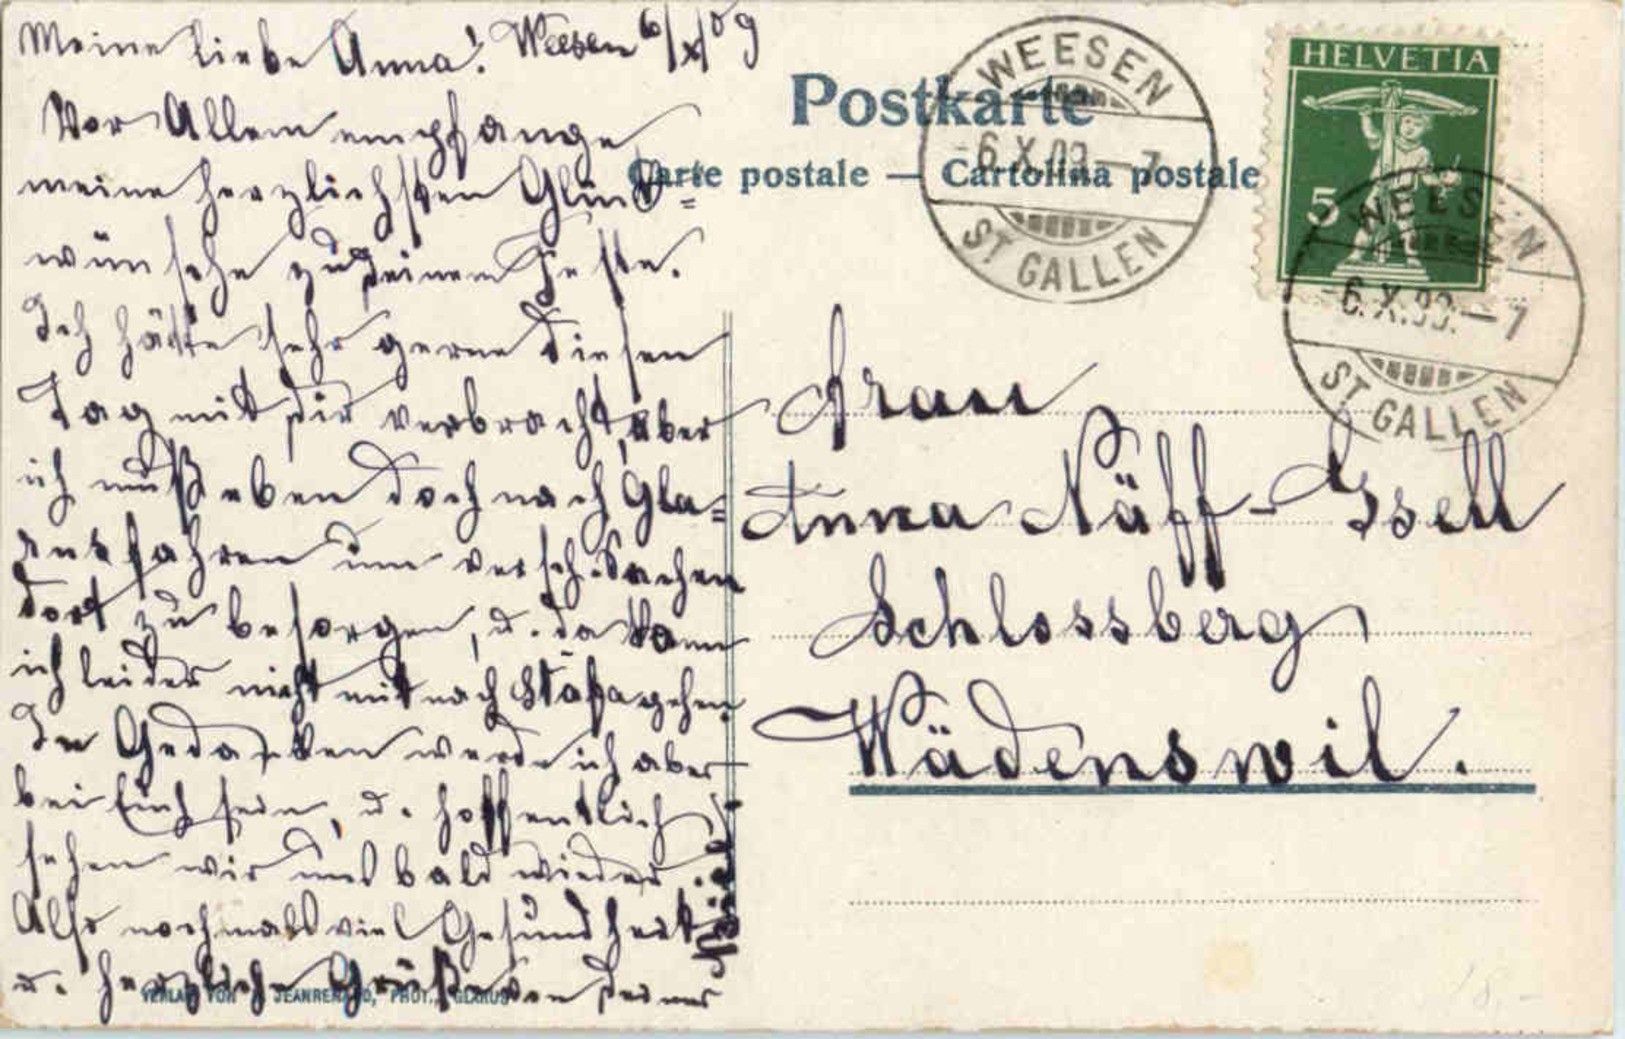 Meine liebe Anna! Weesen 6/X/09
Vor Allem empfange
meine herzlichsten Glück=
wünsche zu deinem Feste.
Ich hätte sehr gerne diesen
Tag mit dir verbracht, aber
ich muß eben doch nach Gla=
rus fahren um versch. Sachen
dort zu besorgen, u. da kann
ich leider nicht mit nach Stäfa gehen.
In Gedanken werde ich aber
bei Euch sein, u. hoffentlich
sehen wir uns bald wieder
Also nochmals viel Gesundheit
u. herzliche Grüße von deiner
Postkarte
Carte postale — Cartolina postale
WEESEN
-6.X.09.-7
ST GALLEN
HELVETIA
5
WEESEN
-6.X.09.-7
ST GALLEN
Frau
Anna Näff-Gsell
Schlossberg
Wädenswil.
VERLAG VON JEANRENAUD, PHOT., GLARUS